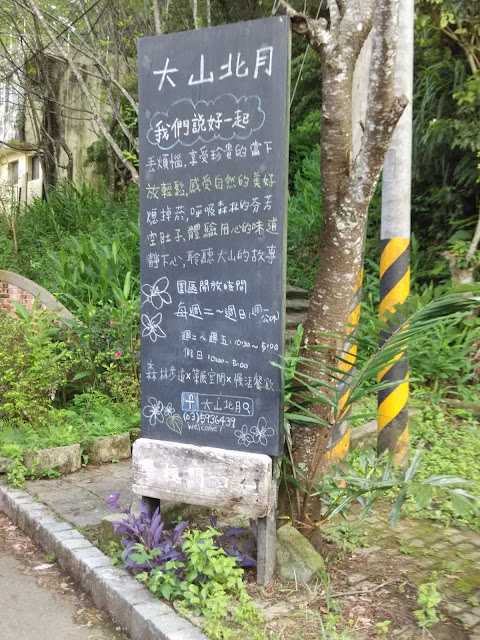 大山北月
我們說好一起
丟煩惱、享受珍貴的當下
放輕鬆,感受自然的美好
熄掉菸,呼吸森林的芬芳
空肚子、體驗用心的味道
靜下心,聆聽大山的故事
園區開放時間
每週二~週日(週一公休)
週二~週五 10:30~5:00
假日 10:00~5:00
森林步道x策展空間x慢活餐飲
f 大山北月
(03)5936439
welcome!